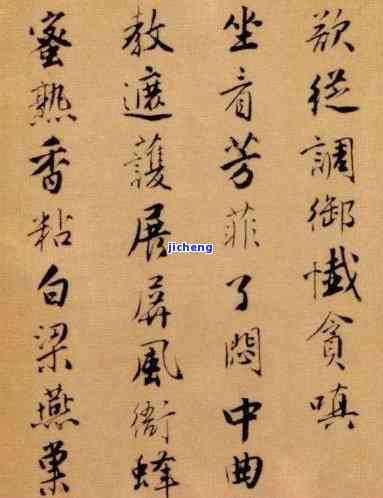 欲從調御懺貪嗔
坐看芳菲了悶中曲
教遮護展屏風衙蜂
蜜熟香粘白梁燕巢
jicheng